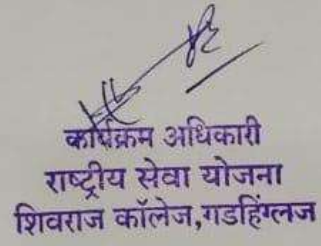 कार्यक्रम अधिकारी
राष्ट्रीय सेवा योजना
शिवराज कॉलेज,गडहिंग्लज